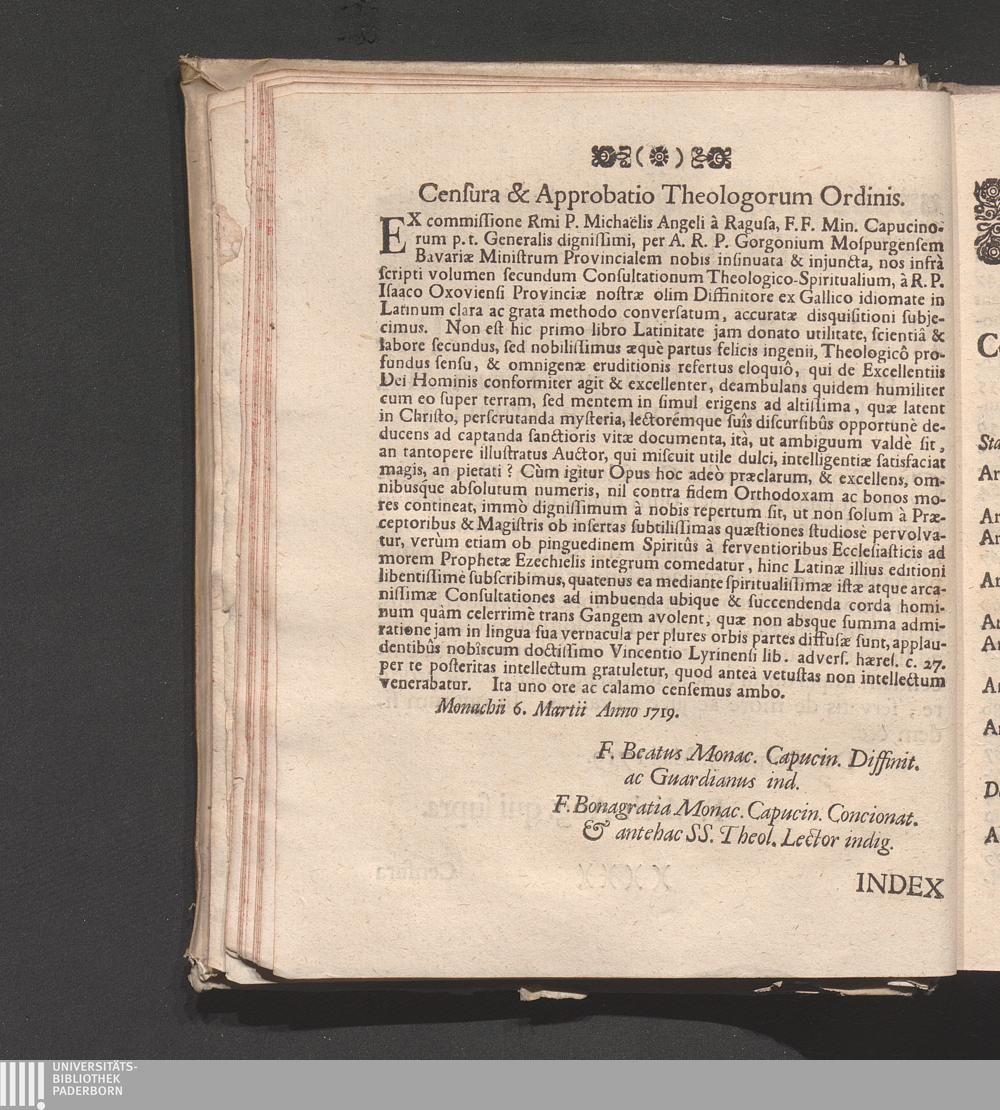 Cenſura & Approbatio Theologorum Ordinis.
EX commiſſione Rmi P. Michaëlis Angeli â Raguſa, F.F. Min. Capucino-
rum p. t. Generalis digniſſimi, per A. R. P. Gorgonium Moſpurgenſem
Bavariæ Miniſtrum Provincialem nobis inſinuata & injuncta, nos infrà
ſcripti volumen ſecundum Conſultationum Theologico-Spiritualium, à R. P.
Iſaaco Oxovienſi Provinciæ noſtræ olim Diffinitore ex Gallico idiomate in
Latinum clara ac grata methodo converſatum, accuratæ disquiſitioni ſubje-
cimus. Non eſt hic primo libro Latinitate jam donato utilitate, ſcientiâ &
labore ſecundus, ſed nobiliſſimus æquè partus felicis ingenii, Theologicô pro-
fundus ſenſu, & omnigenæ eruditionis refertus eloquiô, qui de Excellentiis
Dei Hominis conformiter agit & excellenter, deambulans quidem humiliter
cum eo ſuper terram, ſed mentem in ſimul erigens ad altiſſima, quæ latent
in Chriſto, perſcrutanda myſteria, lectorémque ſuîs diſcurſibûs opportunè de-
ducens ad captanda ſanctioris vitæ documenta, ità, ut ambiguum valdè ſit,
an tantopere illuſtratus Auctor, qui miſcuit utile dulci, intelligentiæ ſatisfaciat
magis, an pietati? Cùm igitur Opus hoc adeò præclarum, & excellens, om-
nibusque abſolutum numeris, nil contra fidem Orthodoxam ac bonos mo-
res contineat, immò digniſſimum à nobis repertum ſit, ut non ſolum à Præ-
ceptoribus & Magiſtris ob inſertas ſubtiliſſimas quæſtiones ſtudiosè pervolva-
tur, verùm etiam ob pinguedinem Spiritûs à ferventioribus Eccleſiaſticis ad
morem Prophetæ Ezechielis integrum comedatur, hinc Latinæ illius editioni
libentiſſimè ſubſcribimus, quatenus ea mediante ſpiritualiſſimæ iſtæ atque arca-
niſſimæ Conſultationes ad imbuenda ubique & ſuccendenda corda homi-
num quàm celerrimè trans Gangem avolent, quæ non absque ſumma admi-
ratione jam in lingua ſua vernacula per plures orbis partes diffuſæ ſunt, applau-
dentibûs nobîscum doctiſſimo Vincentio Lyrinenſi lib. adverſ. hæreſ. c. 27.
per te poſteritas intellectum gratuletur, quod anteà vetuſtas non intellectum
venerabatur. Ita uno ore ac calamo cenſemus ambo.
Monachii 6. Martii Anno 1719.
F. Beatus Monac. Capucin. Diffinit.
ac Guardianus ind.
F. Bonagratia Monac. Capucin. Concionat.
& antehac SS. Theol. Lector indig.
INDEX
UNIVERSITÄTS-
BIBLIOTHEK
PADERBORN